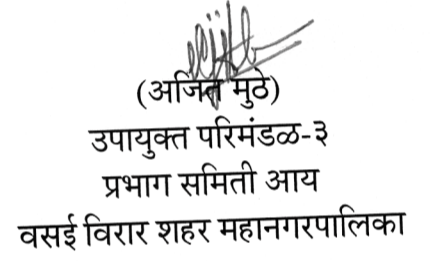 (अजित मुठे)
उपायुक्त परिमंडळ-३
प्रभाग समिती आय
वसई विरार शहर महानगरपालिका